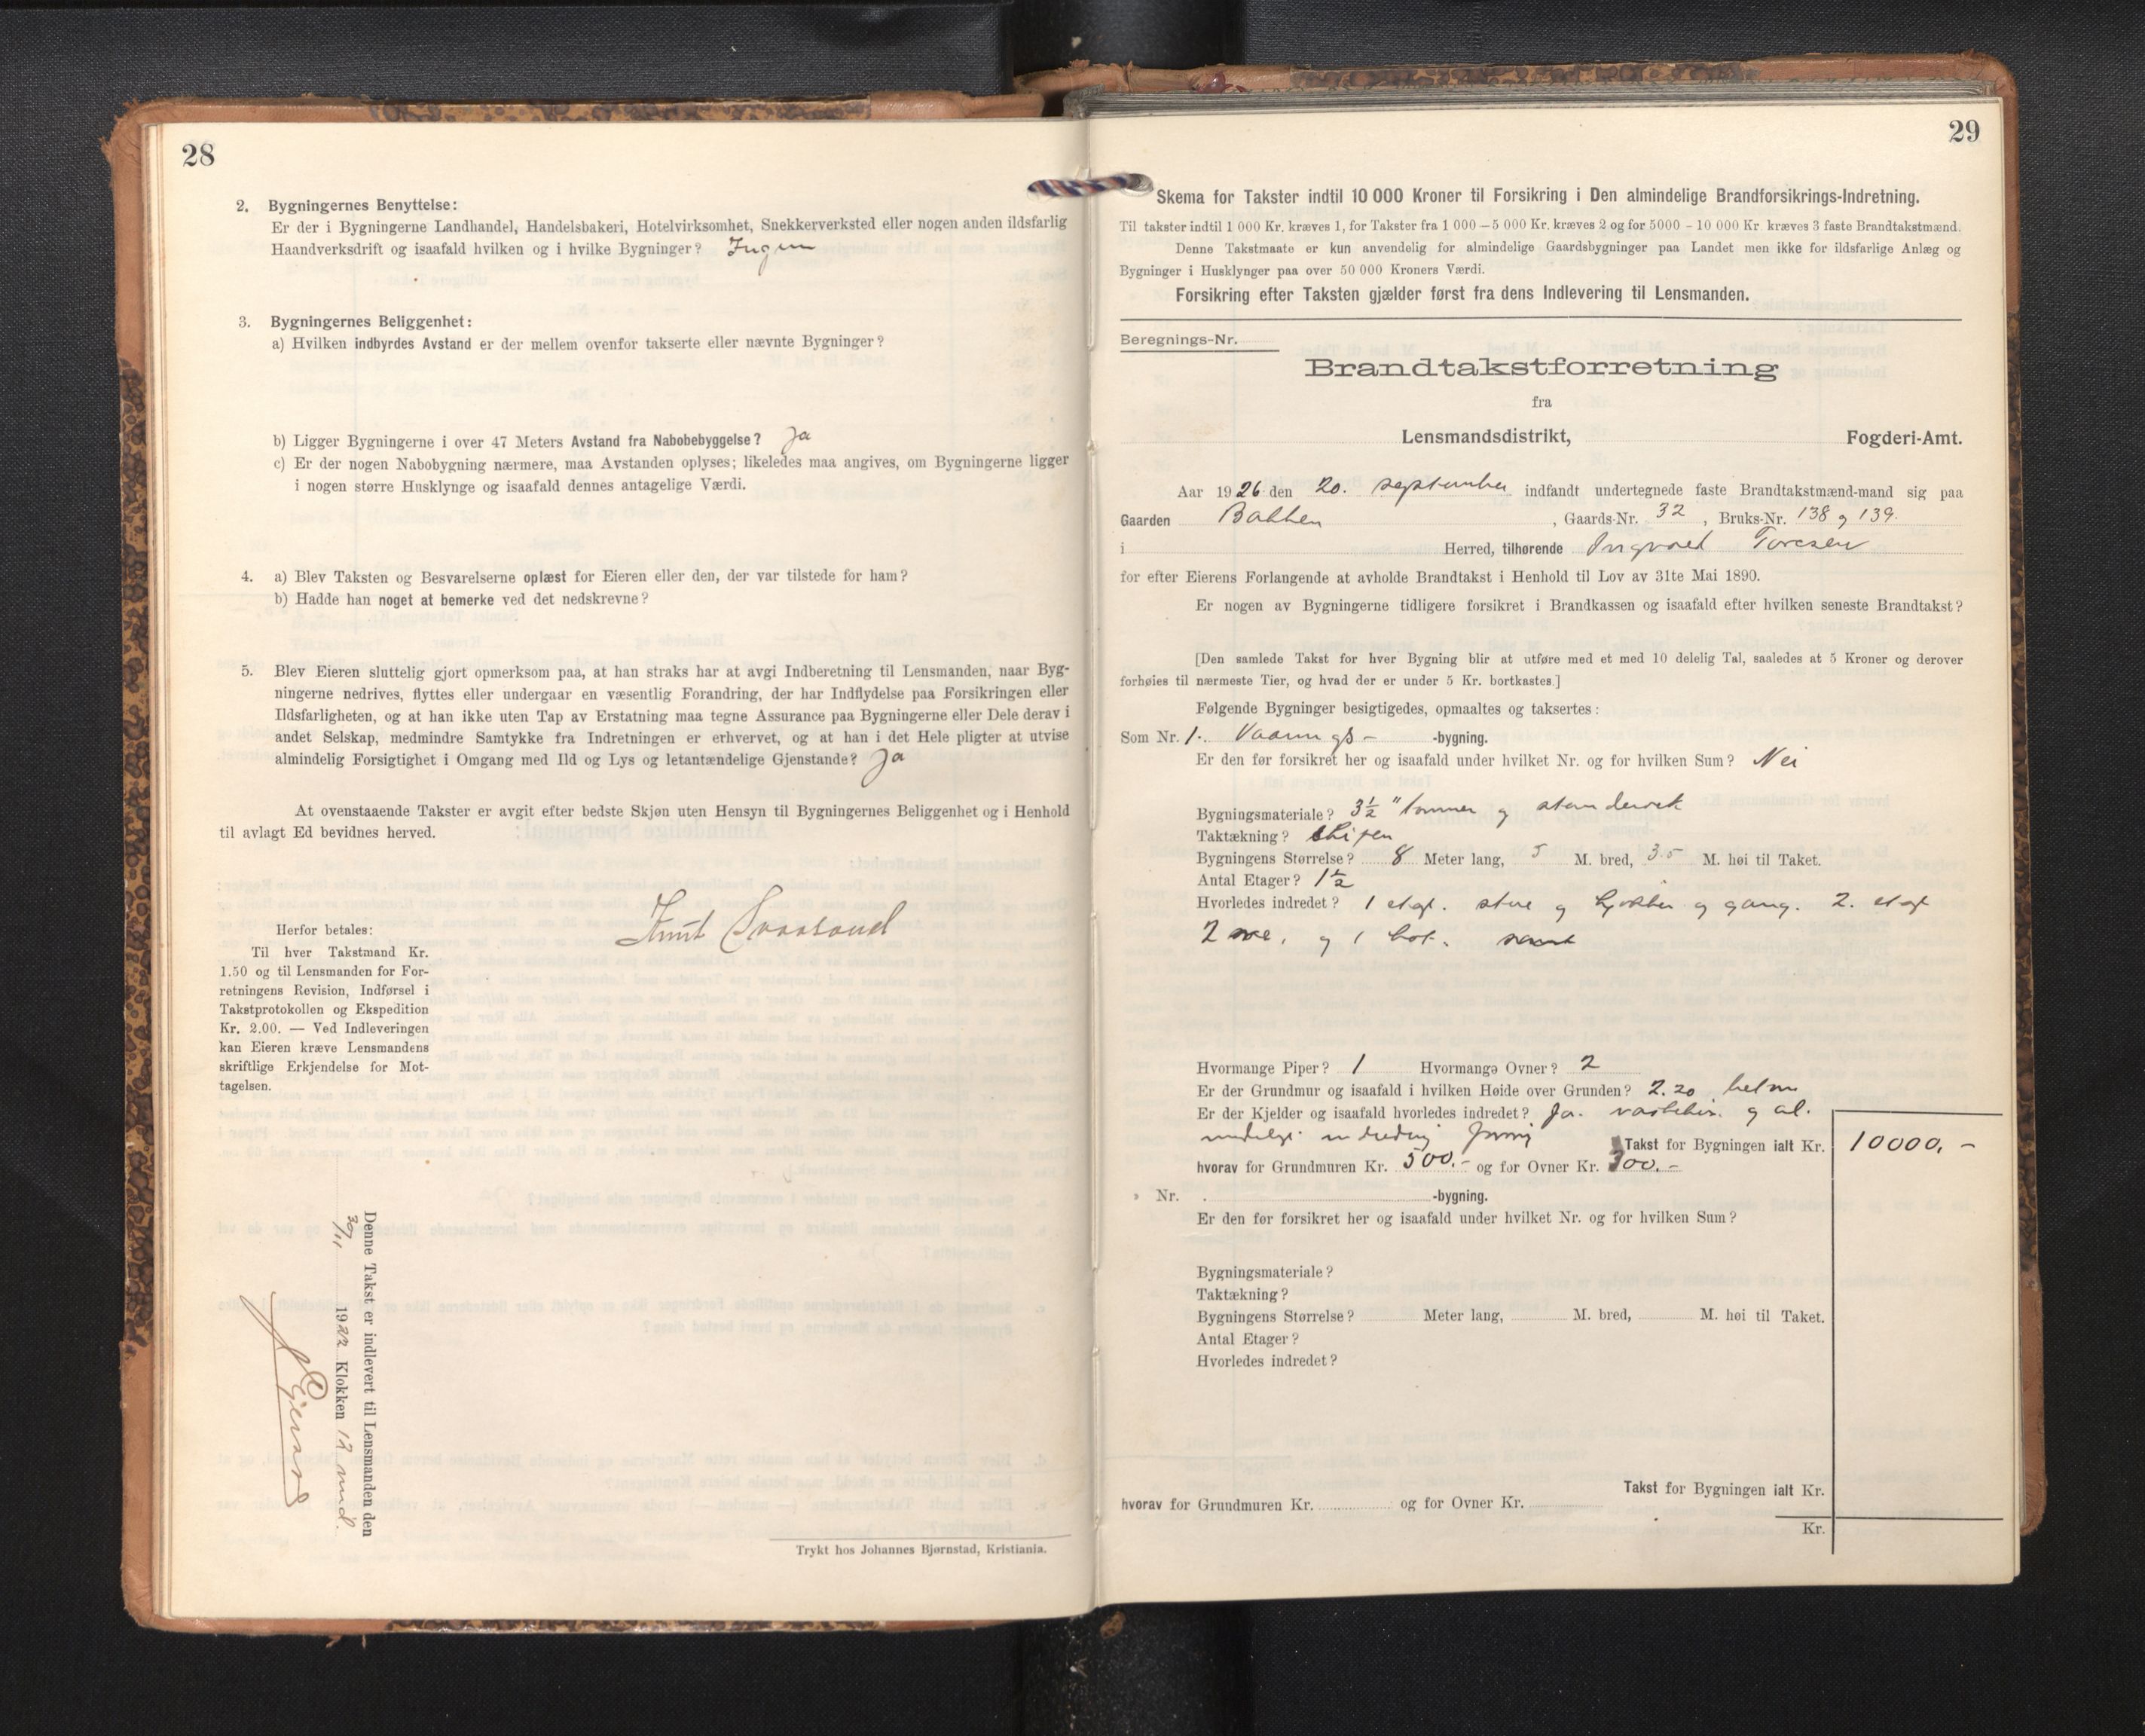 28
2. Bygningernes Benyttelse:
Er der i Bygningerne Landhandel, Handelsbakeri, Hotelvirksomhet, Snekkerverksted eller nogen anden ildsfarlig
Haandverksdrift og isaafald hvilken og i hvilke Bygninger? Ingen
3. Bygningernes Beliggenhet:
a) Hvilken indbyrdes Avstand er der mellem ovenfor takserte eller nævnte Bygninger?
b) Ligger Bygningerne i over 47 Meters Avstand fra Nabobebyggelse? Ja
c) Er der nogen Nabobygning nærmere, maa Avstanden oplyses; likeledes maa angives, om Bygningerne ligger
i nogen større Husklynge og isaafald dennes antagelige Værdi.
4. a) Blev Taksten og Besvarelserne oplæst for Eieren eller den, der var tilstede for ham?
b) Hadde han noget at bemerke ved det nedskrevne?
5. Blev Eieren sluttelig gjort opmerksom paa, at han straks har at avgi Indberetning til Lensmanden, naar Byg-
ningerne nedrives, flyttes eller undergaar en væsentlig Forandring, der har Indflydelse paa Forsikringen eller
Ildsfarligheten, og at han ikke uten Tap av Erstatning maa tegne Assurance paa Bygningerne eller Dele derav i
andet Selskap, medmindre Samtykke fra Indretningen er erhvervet, og at han i det Hele pligter at utvise
almindelig Forsigtighet i Omgang med Ild og Lys og letantændelige Gjenstande? Ja
At ovenstaaende Takster er avgit efter bedste Skjøn uten Hensyn til Bygningernes Beliggenhet og i Henhold
til avlagt Ed bevidnes herved.
Knut
Herfor betales:
Til hver Takstmand Kr.
1.50 og til Lensmanden for For-
retningens Revision, Indførsel i
Takstprotokollen og Ekspedition
Kr. 2.00. — Ved Indleveringen
kan Eieren kræve Lensmandens
skriftlige Erkjendelse for Mot-
tagelsen.
Denne Takst er indlevert til Lensmanden den
30/11 1922 Klokken 12 mid.
Trykt hos Johannes Bjørnstad, Kristiania.
29
Skema for Takster indtil 10 000 Kroner til Forsikring i Den almindelige Brandforsikrings-Indretning.
Til takster indtil 1 000 Kr. kræves 1, for Takster fra 1 000 – 5 000 Kr. kræves 2 og for 5000 – 10 000 Kr. kræves 3 faste Brandtakstmænd.
Denne Takstmaate er kun anvendelig for almindelige Gaardsbygninger paa Landet men ikke for ildsfarlige Anlæg og
Bygninger i Husklynger paa over 50 000 Kroners Værdi.
Forsikring efter Taksten gjælder først fra dens Indlevering til Lensmanden.
Beregnings-Nr.
Brandtakstforretning
fra
Lensmandsdistrikt, Fogderi-Amt.
Aar 1926 den 20. september indfandt undertegnede faste Brandtakstmænd-mand sig paa
Gaarden Bakken, Gaards-Nr. 32, Bruks-Nr. 138 og 139.
i Herred, tilhørende Ingvald Toresen
for efter Eierens Forlangende at avholde Brandtakst i Henhold til Lov av 31te Mai 1890.
Er nogen av Bygningerne tidligere forsikret i Brandkassen og isaafald efter hvilken seneste Brandtakst?
[Den samlede Takst for hver Bygning blir at utføre med et med 10 delelig Tal, saaledes at 5 Kroner og derover
forhøies til nærmeste Tier, og hvad der er under 5 Kr. bortkastes.]
Følgende Bygninger besigtigedes, opmaaltes og taksertes:
Som Nr. 1. Vaanings- -bygning.
Er den før forsikret her og isaafald under hvilket Nr. og for hvilken Sum? Nei
Bygningsmateriale? 3½" tømmer og standerverk
Taktækning? Skifer
Bygningens Størrelse? 8 Meter lang, 5 M. bred, 3.5 M. høi til Taket.
Antal Etager? 1½
Hvorledes indredet? 1 etag. stue og kjøkken og gang. 2. etag
2 og 1
Hvormange Piper? 1 Hvormange Ovner? 2
Er der Grundmur og isaafald i hvilken Høide over Grunden? 2.20 betong
Er der Kjelder og isaafald hvorledes indredet? Ja. og al.
Takst for Bygningen ialt Kr. 10000.-
hvorav for Grundmuren Kr. 500.- og for Ovner Kr. 300.-
» Nr. -bygning.
Er den før forsikret her og isaafald under hvilket Nr. og for hvilken Sum?
Bygningsmateriale?
Taktækning?
Bygningens Størrelse? Meter lang, M. bred, M. høi til Taket.
Antal Etager?
Hvorledes indredet?
Takst for Bygningen ialt Kr.
hvorav for Grundmuren Kr. og for Ovner Kr.
Kr.